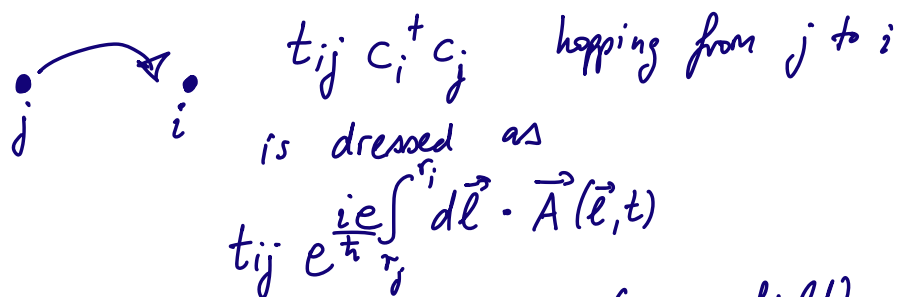 t_{ij} c_i^† c_j hopping from j to i
j i
is dressed as
t_{ij} e^{\frac{ie}{ħ} \int_{r_j}^{r_i} d\vec{l} · \vec{A}(\vec{l},t)}